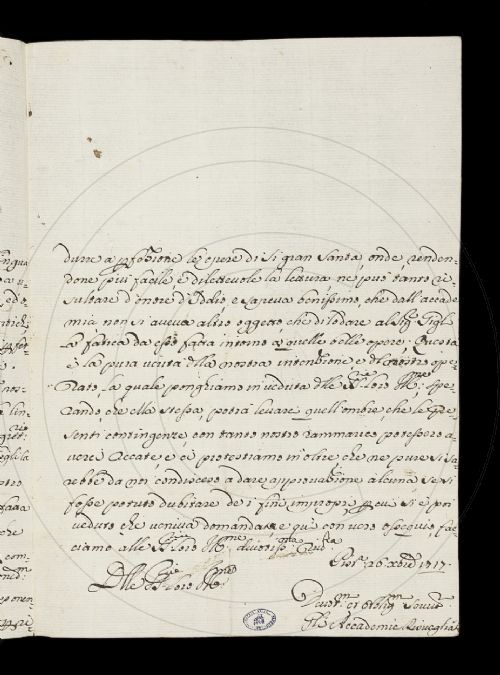 durre a perfezione le opere di sì gran Santa, onde renden-
done più facile e dilettevole la lettura ne può tanto ri-
sultare d'onore d'Iddio, e sapeva benissimo, che dall'accade-
mia non si aveva altro oggetto, che di lodare al Sig.r Gigli
la fatica da esso fatta intorno a quelle belle opere; Questa
è la pura verità della nostra intenzione e del nostro ope-
rato, la quale ponghiamo in veduta delle SS.rie Loro Ill.me spe-
rando che ella stessa, potrà levare quell'ombre, che le pre-
senti contingenze con tanto nostro rammarico potessero a-
vere e ci protestiamo in oltre che ne pure si sa-
rebbe da noi condisceso a dare approvazione alcuna se si
fosse potuto dubitare de i fini improprj, per cui si è poi
veduto che veniva domandata e qui con vero ossequio, fac-
ciamo alle SS.rie Loro Ill.me
26 1717.
Delle SS.rie Loro Ill.me
Devot.mi et Oblig.mi Servit.ri
Gli Accademici